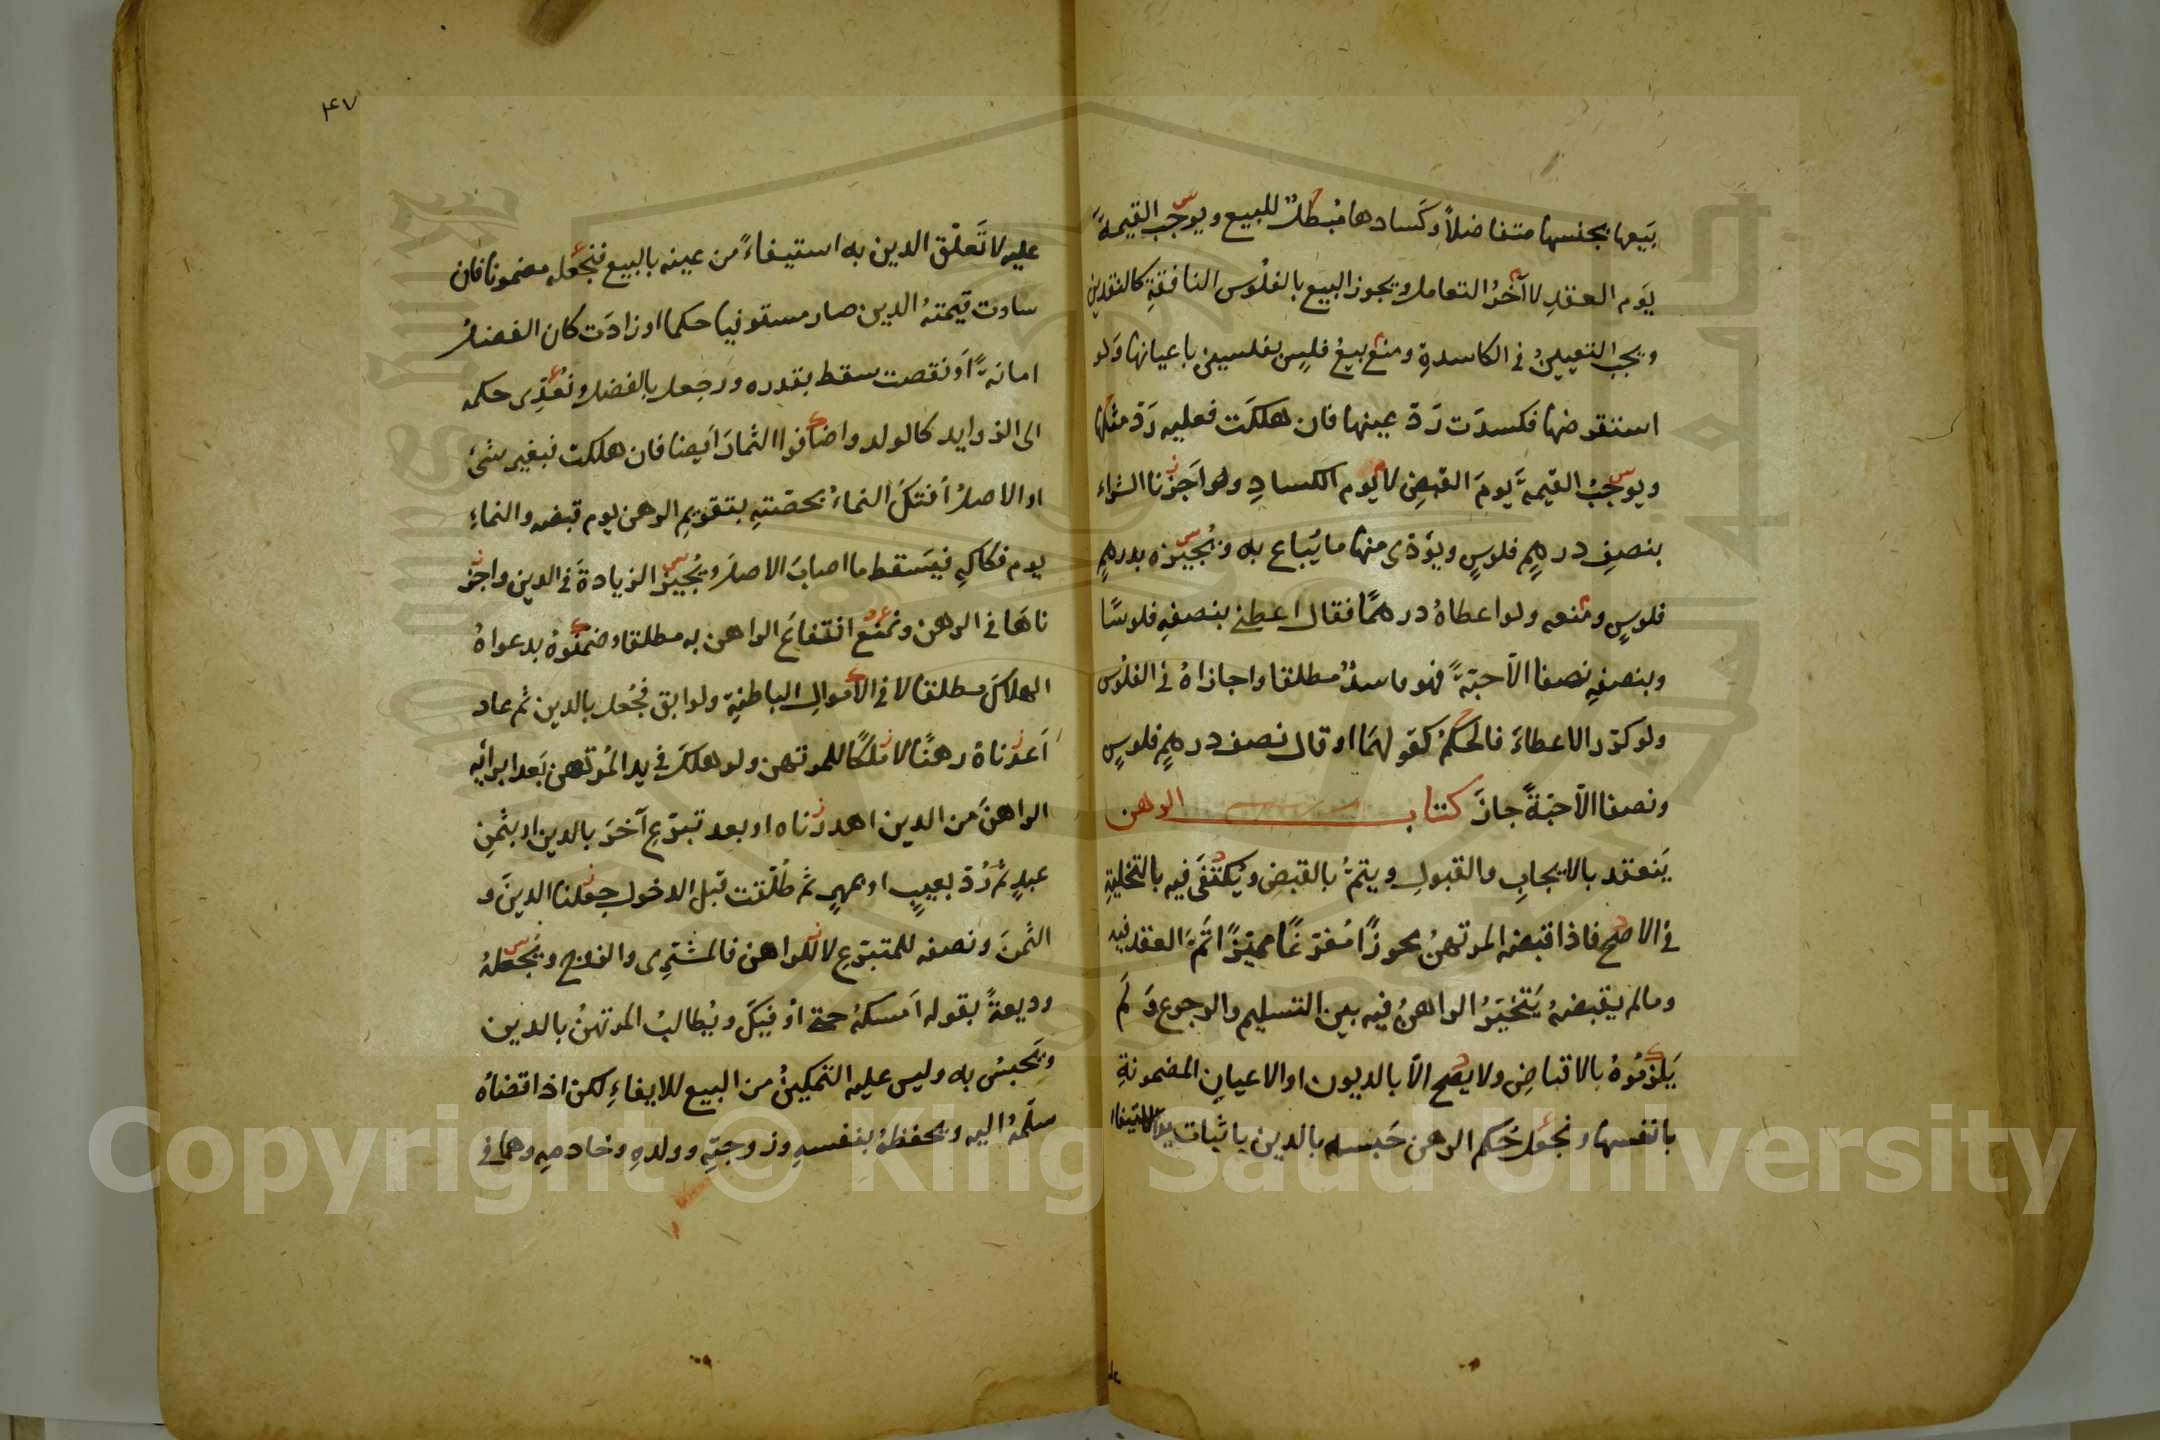 بَيعها بجنسها متفاضلاً وكَسادها مُبْطلٌ للبيع ويوجب القيمةَ
يَوم العقدِ لا آخرُ التعامل ويجوز البيع بالفلوس النافقةِ كالنقدين
ويجب التعيينُ في الكاسدةِ ومنع بيعُ فلسٍ بفلسين باعيانها وَلو
استقرضها فكسدَت رَدّ عينها فان هلكَت فعليه رَدّ مثلها
ويوجبُ القيمةَ يومَ القبض لا يوم الكسادِ ولو اَجَزنا الشراء
بنصفِ درهمٍ فلوسٍ ويؤدى منها ما يُباع به ونُجيزه بدرهمٍ
فلوسٍ ومنعه ولو اعطاهُ درهمًا فقال اعطني بنصفهِ فلوسًا
وبنصفهِ نصفا الاّ حبّةً فهو فاسدٌ مطلقا واجازاهُ في الفلوس
ولو كرّر الاعطاءَ فالحكمُ كقولهمَا او قال نصف درهمٍ فلوسٍ
ونصفا الاّ حبّةً جازَ كتاب الرهن
يَنعقد بالايجابِ والقبولِ ويتمُّ بالقبض ويُكتفَى فيه بالتخليةِ
في الاصَح فاذا قبضه المرتهنُ محوزًا مُفرّغًا مميّزًا تَمَّ العقد فيه
وما لم يقبضهُ يَتخيَّرُ الراهنُ فيه بين التسليم والرجوع وَلَم
يَلزمُوهُ بالاقباضِ ولا يصَح الاّ بالديون او الاعيان المضمونةِ
بانفسها ونجعَل حُكم الرهن حَبسه بالدين باثبات يد الاستيفاء
٤٧
عليه لا تَعلّق الدين به استيفاءً من عينه بالبيع فنجعله مضمونا فان
ساوت قيمتهُ الدين صار مستوفيا حكما او زادَت كان الفضلُ
امانةً اَو نقصت سقط بقدره ورَجعَ بالفضل ونُعَدِّى حكمه
الى الزوايد كالولد واضافوا الثمارَ اَيضا فان هلكت فبغير شئ
او الاصلُ اُفتكَّ النماءُ بحصّتهِ بتقويمِ الرهن يوم قبضه والنماءِ
يوم فكاكهِ فيَسقط ما اصابَ الاصلَ ويُجيز الزيادةَ في الدين واجز
ناهَا في الرهن ونمنع انتفاعَ الراهن به مطلقا وضمّنوهُ بدعواهُ
الهلاكَ مطلقا لا في الاَموالِ الباطنةِ ولو ابق فجُعل بالدين ثم عاد
اَعدناهُ رهنًا لا مُلكًا للمرتهن ولو هلكَ في يد المُرتهن بَعد ابرائِه
الراهنَ من الدين اهدرناه او بعد تبرّعِ آخرَ بالدين او بثمنِ
عبدٍ ثم رُدّ بعيبٍ او بمهرٍ ثم طُلّقت قبل الدخول جعلنا الدينَ و
الثمنَ ونصفه للمتبرّعِ لا للراهن فالمشترِى والزوج ويَجعلهُ
وديعةً بقوله اَمسكهُ حتى اوُفيَكَ ويُطالبُ المرتهنُ بالدين
ويَحبسُ به وليس عليه التمكينُ من البيع للايفاءِ لكن اذا قضاهُ
سلّمهُ اليه ويحفظهُ بنفسهِ وزوجتِه وولدهِ وخادمهِ وهما في
Copyright © King Saud University